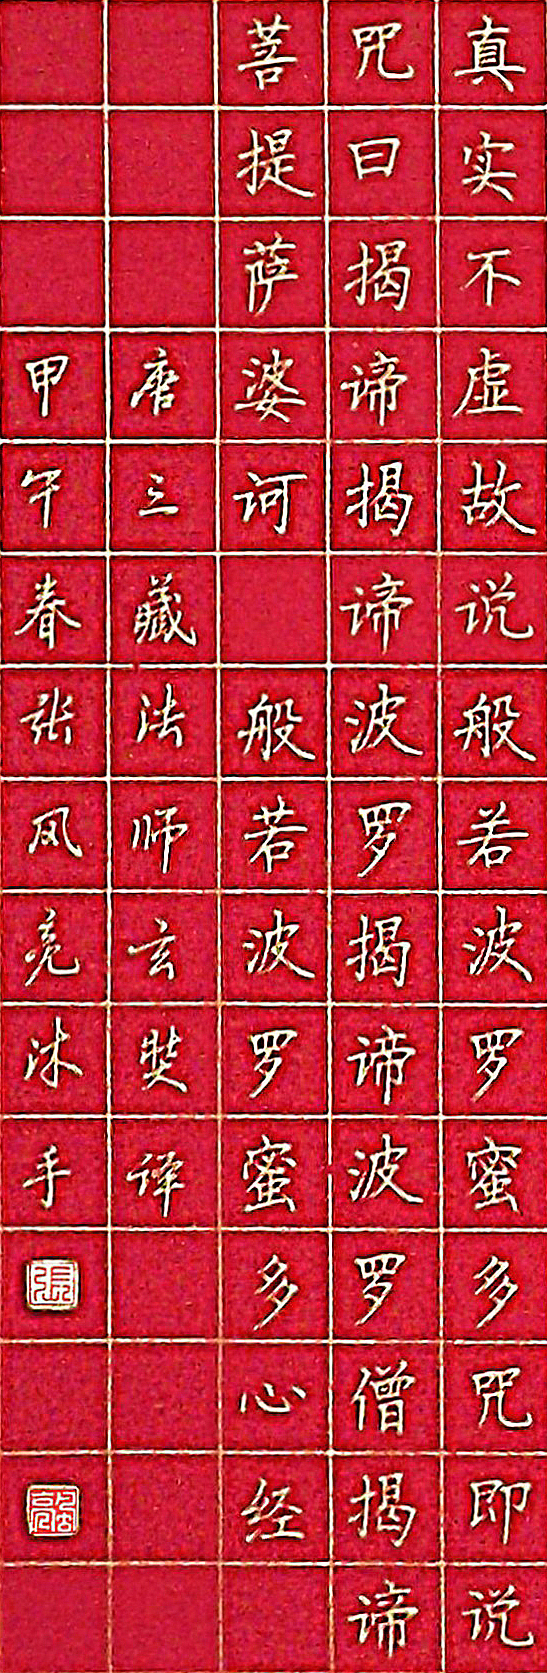 真实不虚故说般若波罗蜜多咒即说
咒曰揭谛揭谛波罗揭谛波罗僧揭谛
菩提萨婆诃 般若波罗蜜多心经
唐三藏法师玄奘译
甲午春张凤亮沐手
張